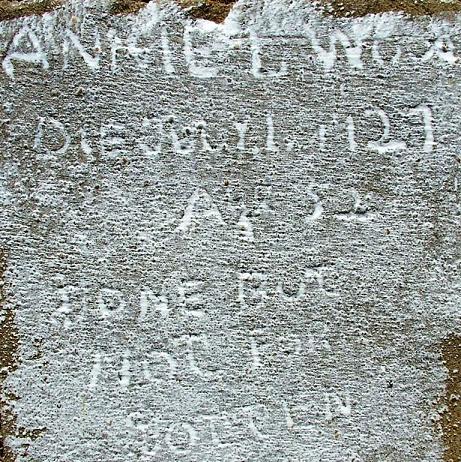 ANNIE L
DIE JULY 1, 1927
A
GONE BUT
NOT FOR
GOTTEN